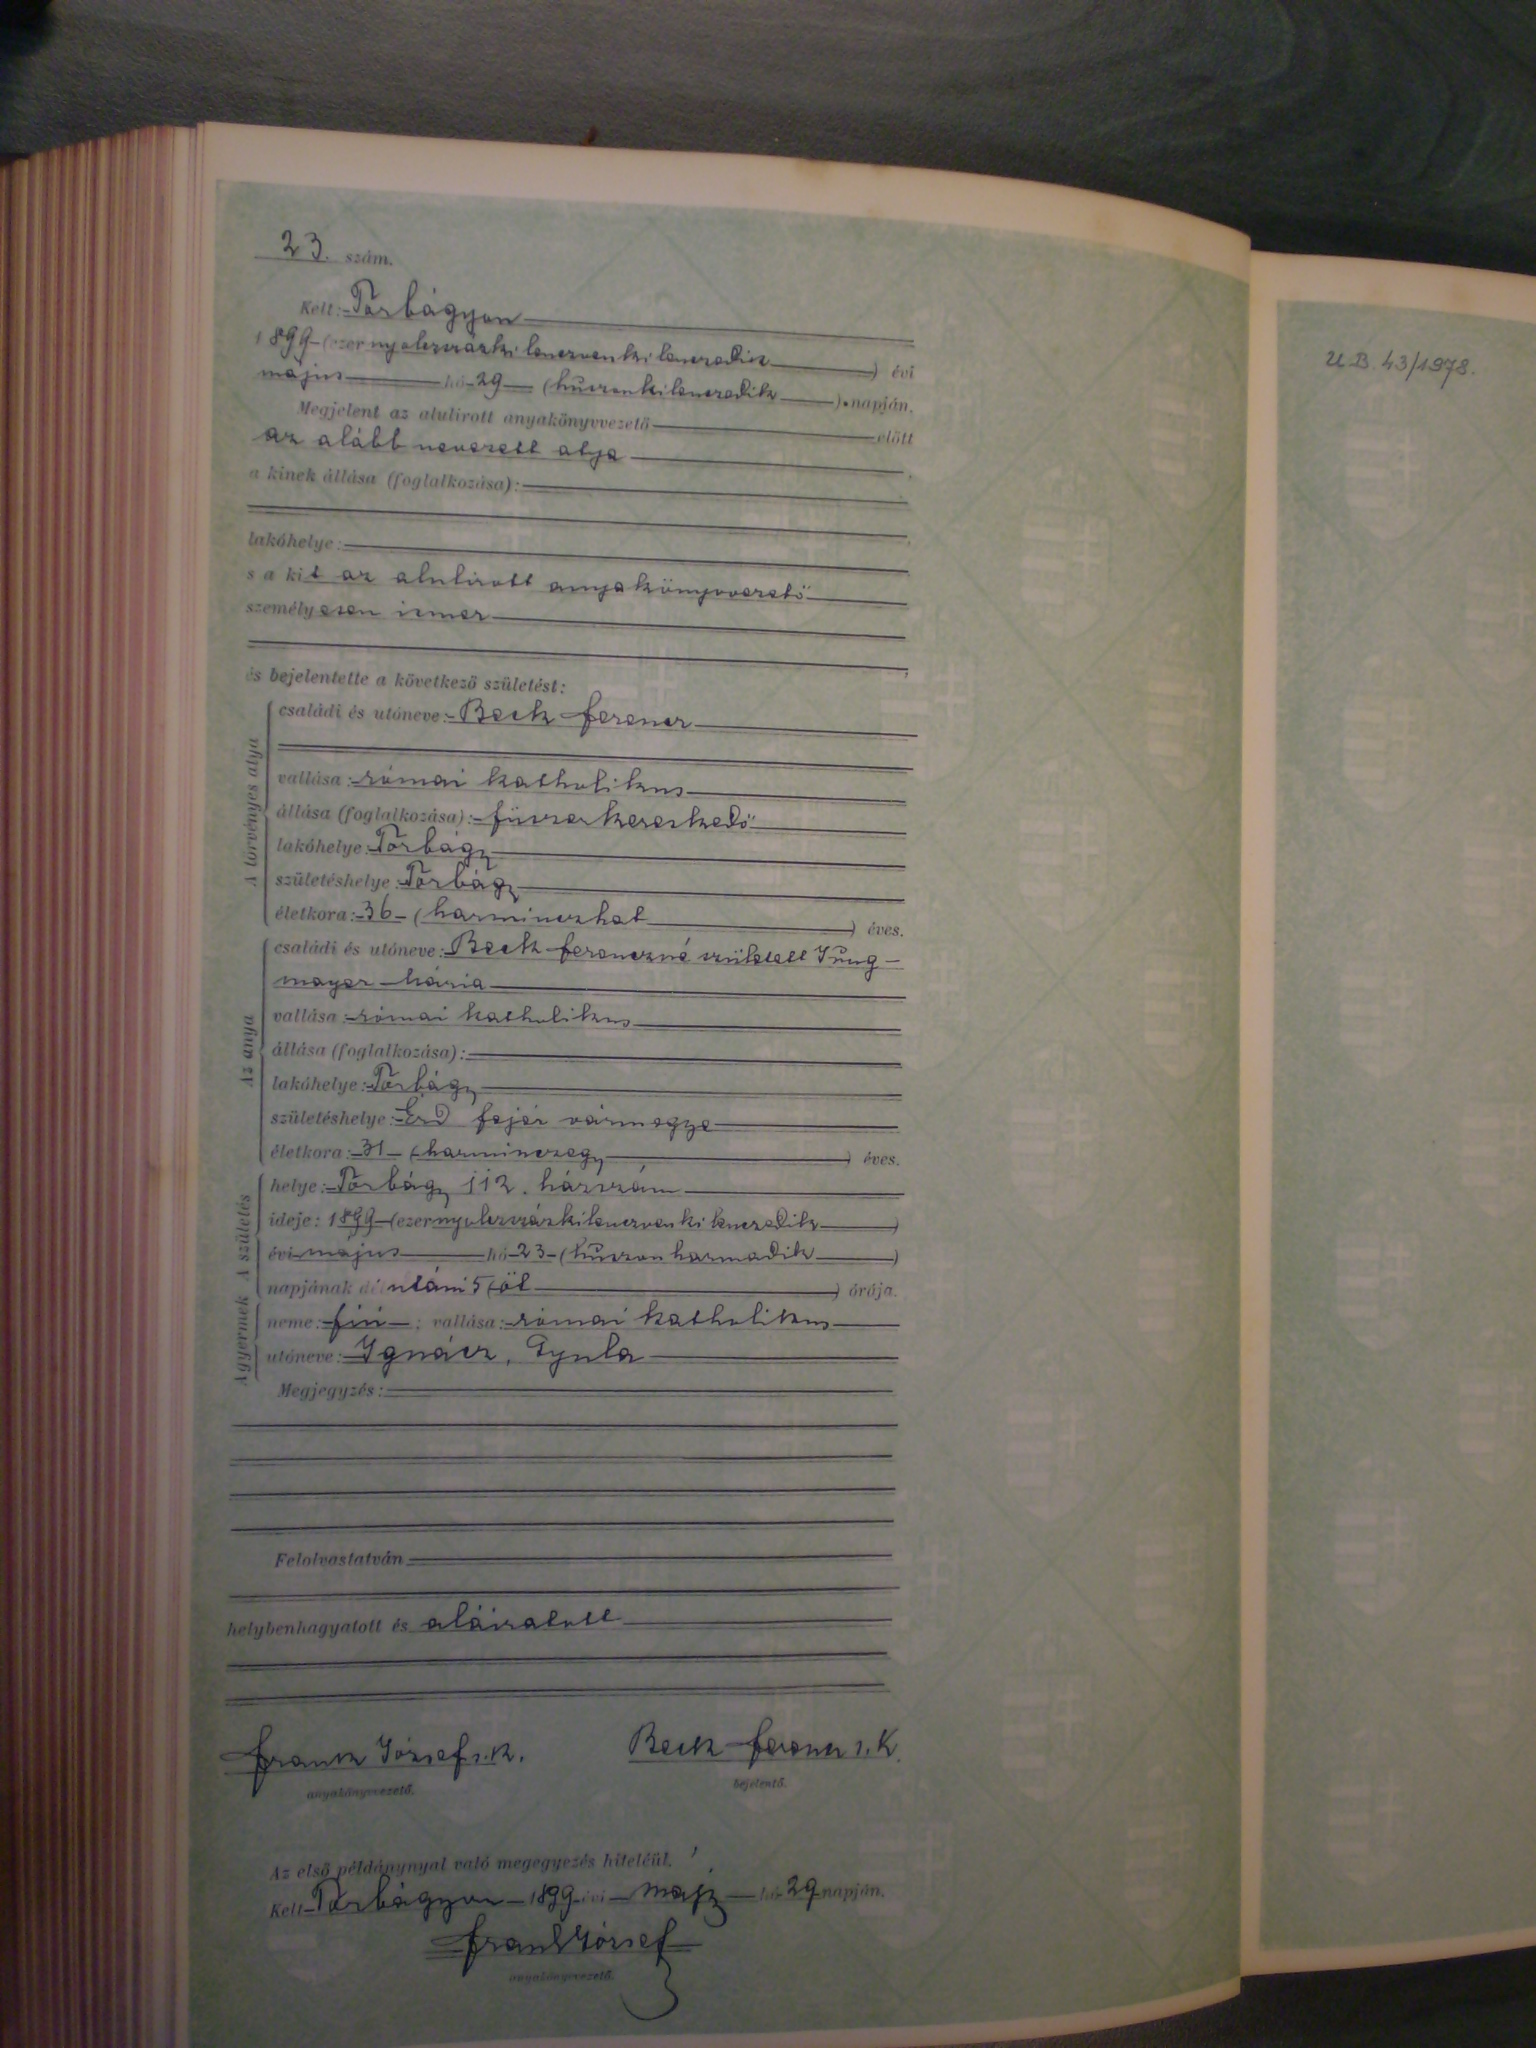 23. szám.
Kelt: Törbágyon
1899 (ezernyolczszázkilenczvenkilenczedik) évi
május hó 29 (huszonkilenczedik) napján.
Megjelent az alulirott anyakönyvvezető előtt
az alább nevezett atya,
a kinek állása (foglalkozása):
lakóhelye:
s a kit az alulirott anyakönyvvezető
személyesen ismer
és bejelentette a következő születést:
A törvényes atya
családi és utóneve: Beck Ferencz
vallása: római katholikus
állása (foglalkozása): füszerkereskedő
lakóhelye: Törbágy
születéshelye: Törbágy
életkora: 36 (harminczhat) éves.
Az anya
családi és utóneve: Beck Ferenczné született Jung-
mayer Mária
vallása: római katholikus
állása (foglalkozása):
lakóhelye: Törbágy
születéshelye: Érd Fejér vármegye
életkora: 31 (harminczegy) éves.
A születés
helye: Törbágy 112. házszám
ideje: 1899 (ezernyolczszázkilenczvenkilenczedik)
évi május hó 23 (huszonharmadik)
napjának délutáni 5 (öt) órája.
A gyermek
neme: fiú; vallása: római katholikus
utóneve: Ignácz, Gyula
Megjegyzés:
Felolvastatván
helybenhagyatott és aláiratott
Frank József s.k. Beck Ferencz s.k.
anyakönyvvezető. bejelentő.
Az első példánynyal való megegyezés hiteléül.
Kelt Törbágyon 1899 évi máj hó 29 napján.
Frank József
anyakönyvvezető.
U.B. 43/1978.